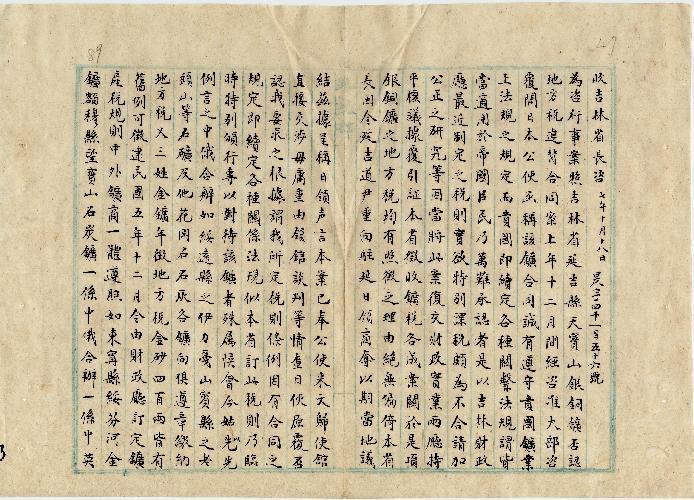 收吉林省長咨 七年十月八日
為咨行事案照吉林省延吉縣天寶山銀銅鑛否認
地方稅違背合同案上年十二月間經咨准大部咨
復開日本公使函稱該鑛合同誠有遵守貴國鑛業
上法規之規定而貴國即續定各種關繫法規謂皆
當適用於帝國臣民乃萬難承認者是以吉林財政
廳最近制定之稅則實欲特別課稅頗為不合請加
公正之研究等因當將此案復交財政實業兩廳持
平核議據覆引証本省徵收鑛稅各成案關於是項
銀銅鑛之地方稅均有照徵之理由絕無偏倚本省
長因令延吉道尹重向駐延日領商辦以期當地議
結茲據呈稱日領聲言本案已奉公使來文歸使館
直接交涉毋庸重由領館談判等情查日使原覆否
認我要求之根據謂我所定稅則條例因有合同之
規定即續定各種關係法規似本省訂此稅則乃臨
時特別頒行專以對待該鑛者殊屬誤會今姑先
例言之中俄合辦如綏遠縣之伊力戛山賓縣之老
頭山等石礦及他花岡石石灰各鑛向俱遵章繳納
地方稅又三姓金鑛年徵地方稅金砂四百兩皆有
舊例可徵逮民國五年十二月令由財政廳訂定鑛
產稅規則中外鑛商一體遵照如東寧縣綏芬河金
鑛額穆縣望寶山石炭鑛一係中俄合辦一係中英